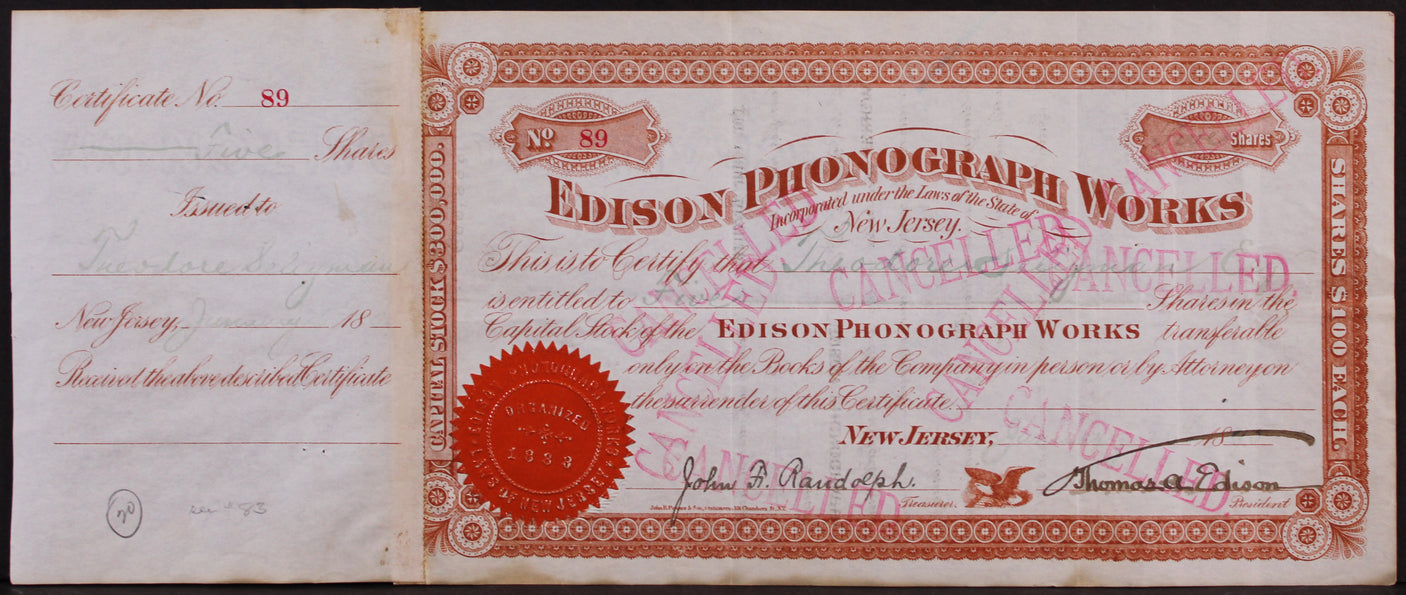 Certificate No. 89
Five Shares
Issued to
Theodore Seligman
New Jersey, January 18
Received the above described Certificate
20
CAPITAL STOCK $300,000.
No. 89
Shares
EDISON PHONOGRAPH WORKS
Incorporated under the Laws of the State of
New Jersey.
This is to Certify that Theodore Seligman
is entitled to Five Shares in the
Capital Stock of the EDISON PHONOGRAPH WORKS transferable
only on the Books of the Company in person or by Attorney on
the surrender of this Certificate.
NEW JERSEY, 18
John F. Randolph. Treasurer.
Thomas A. Edison President
SHARES $100 EACH
EDISON PHONOGRAPH WORKS
ORGANIZED
1888
OF NEW JERSEY
CANCELLED
CANCELLED
CANCELLED
CANCELLED
CANCELLED
CANCELLED
CANCELLED
CANCELLED